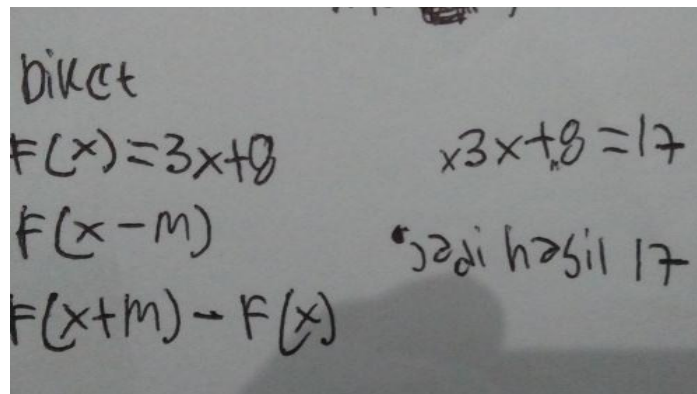 Diket
F(x)=3x+8
F(x-m)
F(x+m)-F(x)
x3x+8=17
Jadi hasil 17